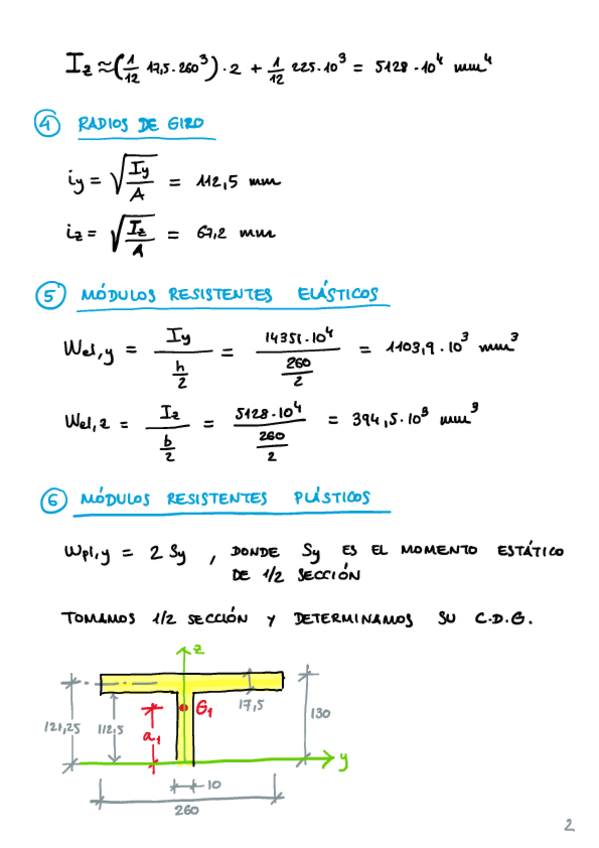 Iz ≈ (1/12 17,5·260³)·2 + 1/12 225·10³ = 5128·10⁴ mm⁴
④ RADIOS DE GIRO
iy = √(Iy/A) = 112,5 mm
iz = √(Iz/A) = 67,2 mm
⑤ MÓDULOS RESISTENTES ELÁSTICOS
Wel,y = Iy/(h/2) = 14351·10⁴/(260/2) = 1103,9·10³ mm³
Wel,z = Iz/(b/2) = 5128·10⁴/(260/2) = 394,5·10³ mm³
⑥ MÓDULOS RESISTENTES PLÁSTICOS
Wpl,y = 2 Sy , DONDE Sy ES EL MOMENTO ESTÁTICO
DE 1/2 SECCIÓN
TOMAMOS 1/2 SECCIÓN Y DETERMINAMOS SU C.D.G.
z
G1
17,5
130
121,25
112,5
a1
y
10
260
2